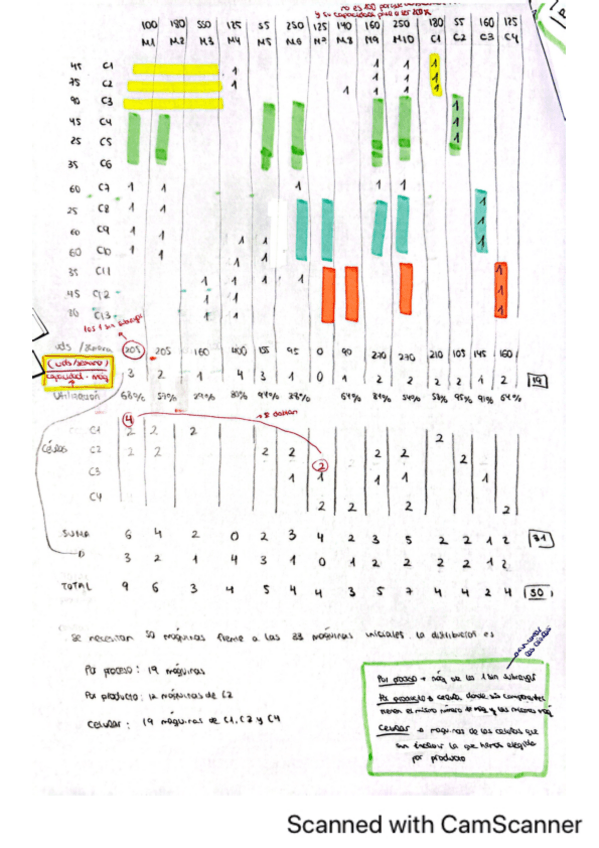 100 180 550 125 55 250 125 140 160 250 180 55 160 125
M1 M2 M3 M4 M5 M6 M7 M8 M9 M10 C1 C2 C3 C4
45 C1 1 1 1 1
75 C2 1 1 1 1 1
90 C3 1 1 1
45 C4 1
25 C5 1
35 C6 1
60 C7 1 1 1 1 1
25 C8 1 1 1
60 C9 1 1 1 1 1
60 C10 1 1 1 1
35 C11 1 1 1 1 1
45 C12 1 1 1
C13 1 1 1
los 1 sin
uds /semana 205 205 160 400 155 95 0 90 270 270 210 105 145 160
(uds/semana)
capacidad máq 3 2 1 4 3 1 0 1 2 2 2 2 1 2
Utilización 68% 57% 29% 80% 94% 38% 64% 84% 54% 58% 95% 91% 64%
4
C1 2 2 2 2
Células C2 2 2 2 2 2 2 2
C3 1 1 1 1 1
C4 2 2 2 2
SUMA 6 4 2 0 2 3 4 2 3 5 2 2 1 2
3 2 1 4 3 1 0 1 2 2 2 2 1 2
TOTAL 9 6 3 4 5 4 4 3 5 7 4 4 2 4 50
Se necesitan 50 máquinas frente a las 33 máquinas iniciales la distribución es
Por proceso: 19 máquinas
Por producto: 12 máquinas de C2
Celular: 19 máquinas de C1, C3 y C4
Por proceso → máq de los 1 sin
Por producto → célula donde sus componentes
tienen el mismo número de máq y las mismas máq
Celular → maquinas de las celulas que
sin incluir la que hemos elegido
por producto
Scanned with CamScanner